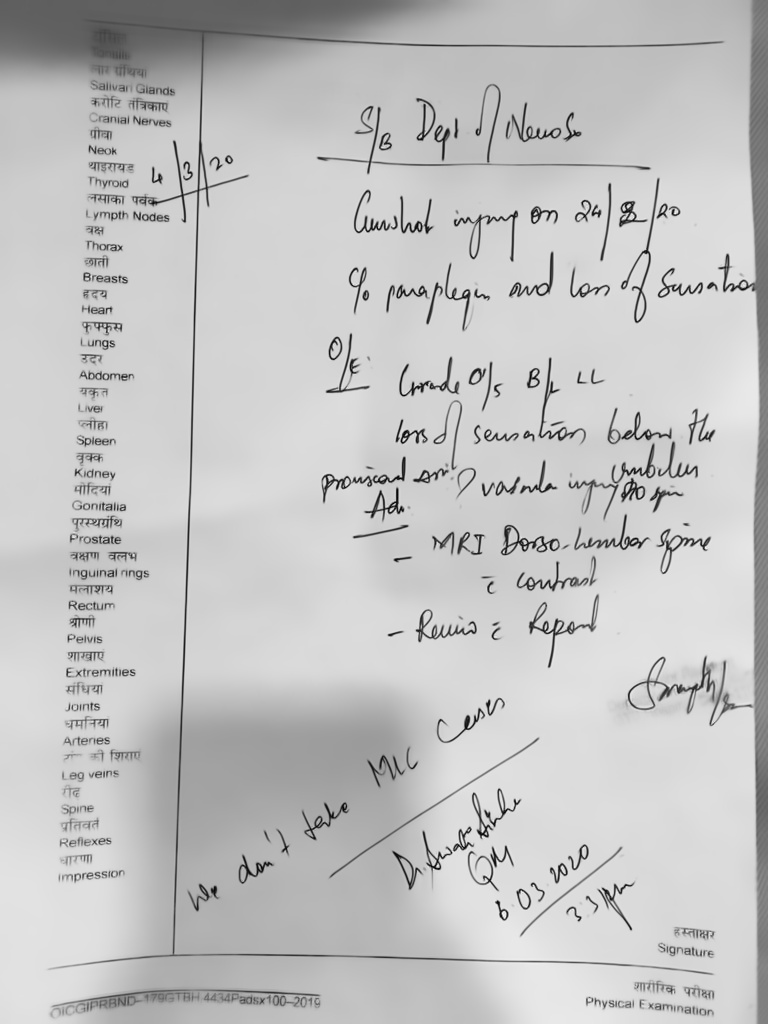 लार ग्रंथिया
Salivari Glands
करोटि तंत्रिकाएं
Cranial Nerves
ग्रीवा
Neok
थाइरायड
Thyroid
4/3/20
लसाका पर्वक
Lymph Nodes
वक्ष
Thorax
छाती
Breasts
हृदय
Heart
फुफ्फुस
Lungs
उदर
Abdomen
यकृत
Liver
प्लीहा
Spleen
वृक्क
Kidney
Gonitalia
पुरस्थग्रंथि
Prostate
वक्षण वलभ
Inguinal rings
मलाशय
Rectum
श्रोणी
Pelvis
शाखाएं
Extremities
संधिया
Joints
धमनिया
Arteries
की शिराएं
Leg veins
रीढ़
Spine
Reflexes
धारणा
Impression
S/B Dept of Neuro Sx
Gunshot injury on 24/2/20
c/o paraplegia and loss of sensation
O/E:
Grade 0/5 B/L LL
loss of sensation below the
umbilicus
? vascular injury to spine
Adv.
- MRI Dorso-lumbar spine
c contrast
- Review c Report
We don't take MLC Cases
Dr. Swati Sinha
6.03.2020
3:31pm
हस्ताक्षर
Signature
शारीरिक परीक्षा
Physical Examination
OICGIPRBND-179GTBH.4434Padsx100-2019